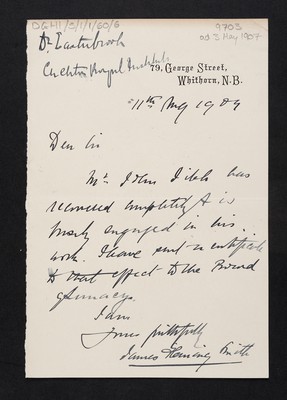 DGH1/5/1/1/60/6
9703
Dr Easterbrook
Crichton Royal Institute
79, George Street,
Whithorn, N.B.
11th May 1909
Dear Sir
Mr John has
recovered completely & is
busily engaged in his
work. I have sent a certificate
to that effect to the Board
of Lunacy.
I am
Yours faithfully
James Fleming